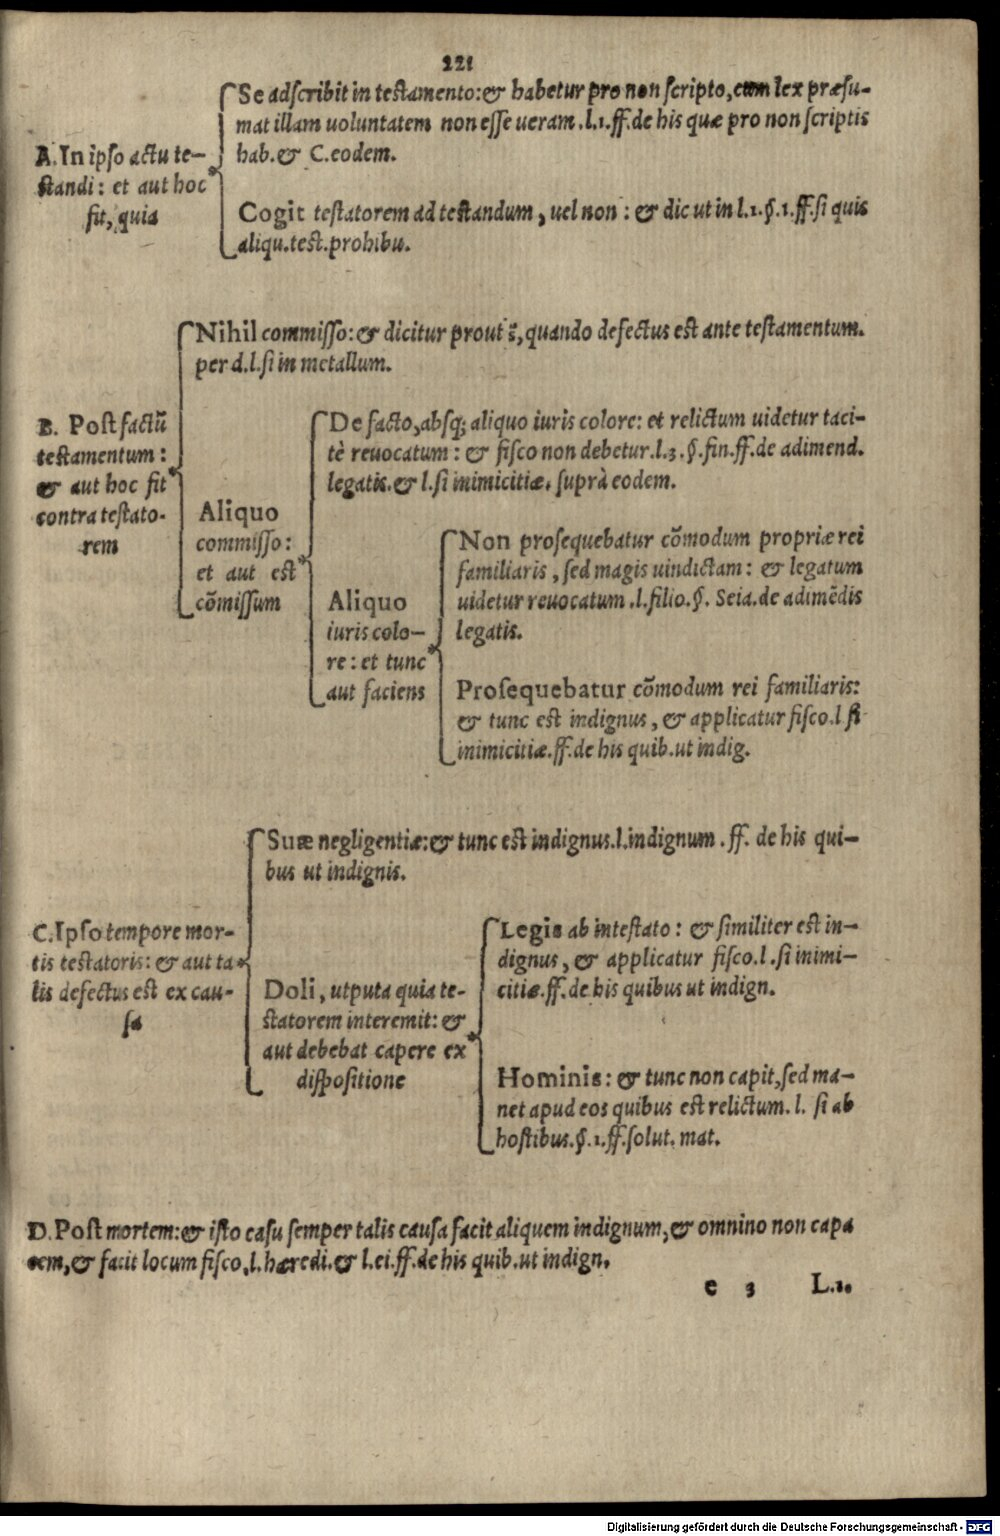 221
Se adscribit in testamento: & habetur pro non scripto, cum lex præsu-
mat illam uoluntatem non esse ueram. l.1. ff. de his quæ pro non scriptis
hab. & C. eodem.
A. In ipso actu te-
standi: et aut hoc
fit, quia
Cogit testatorem ad testandum, uel non: & dic ut in l.1. §.1. ff. si quis
aliqu. test. prohibu.
Nihil commisso: & dicitur prout s̃, quando defectus est ante testamentum.
per d. l. si in metallum.
B. Post factũ
testamentum:
& aut hoc fit
contra testato-
rem
Aliquo
commisso:
et aut est
cõmissum
De facto, absq; aliquo iuris colore: et relictum uidetur taci-
tè reuocatum: & fisco non debetur. l.3. §. fin. ff. de adimend.
legatis. & l. si inimicitiæ. suprà eodem.
Aliquo
iuris colo-
re: et tunc
aut faciens
Non prosequebatur cõmodum propriæ rei
familiaris, sed magis uindictam: & legatum
uidetur reuocatum. l. filio. §. Seia. de adimẽdis
legatis.
Prosequebatur cõmodum rei familiaris:
& tunc est indignus, & applicatur fisco. l si
inimicitiæ. ff. de his quib. ut indig.
Suæ negligentiæ: & tunc est indignus. l. indignum. ff. de his qui-
bus ut indignis.
C. Ipso tempore mor-
tis testatoris: & aut ta
lis defectus est ex cau-
sa
Doli, utputa quia te-
statorem interemit: &
aut debebat capere ex
dispositione
Legis ab intestato: & similiter est in-
dignus, & applicatur fisco. l. si inimi-
citiæ. ff. de his quibus ut indign.
Hominis: & tunc non capit, sed ma-
net apud eos quibus est relictum. l. si ab
hostibus. §.1. ff. solut. mat.
D. Post mortem: & isto casu semper talis causa facit aliquem indignum, & omnino non capa
cem, & facit locum fisco, l. hæredi. & l. ei. ff. de his quib. ut indign.
e 3 L.1.
Digitalisierung gefördert durch die Deutsche Forschungsgemeinschaft - DFG